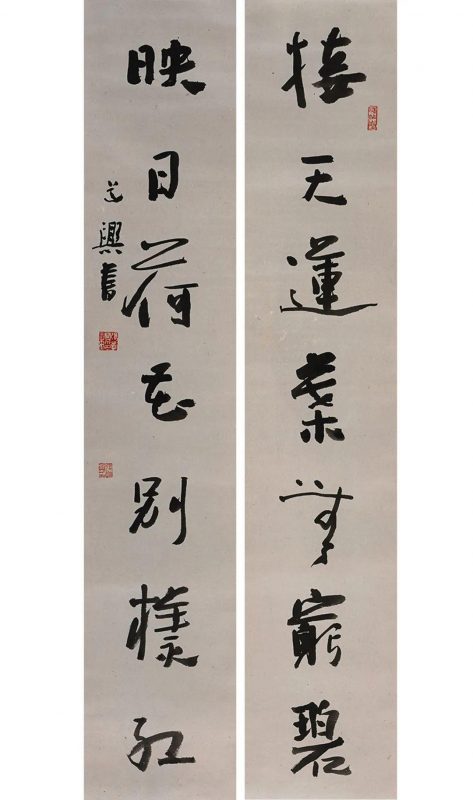 接天蓮葉無窮碧
映日荷花別樣紅
道興書